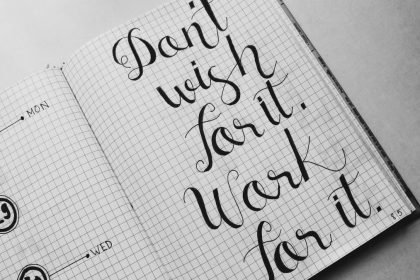 MON
19
WED
Don't
wish
for it.
Work
for it.
85